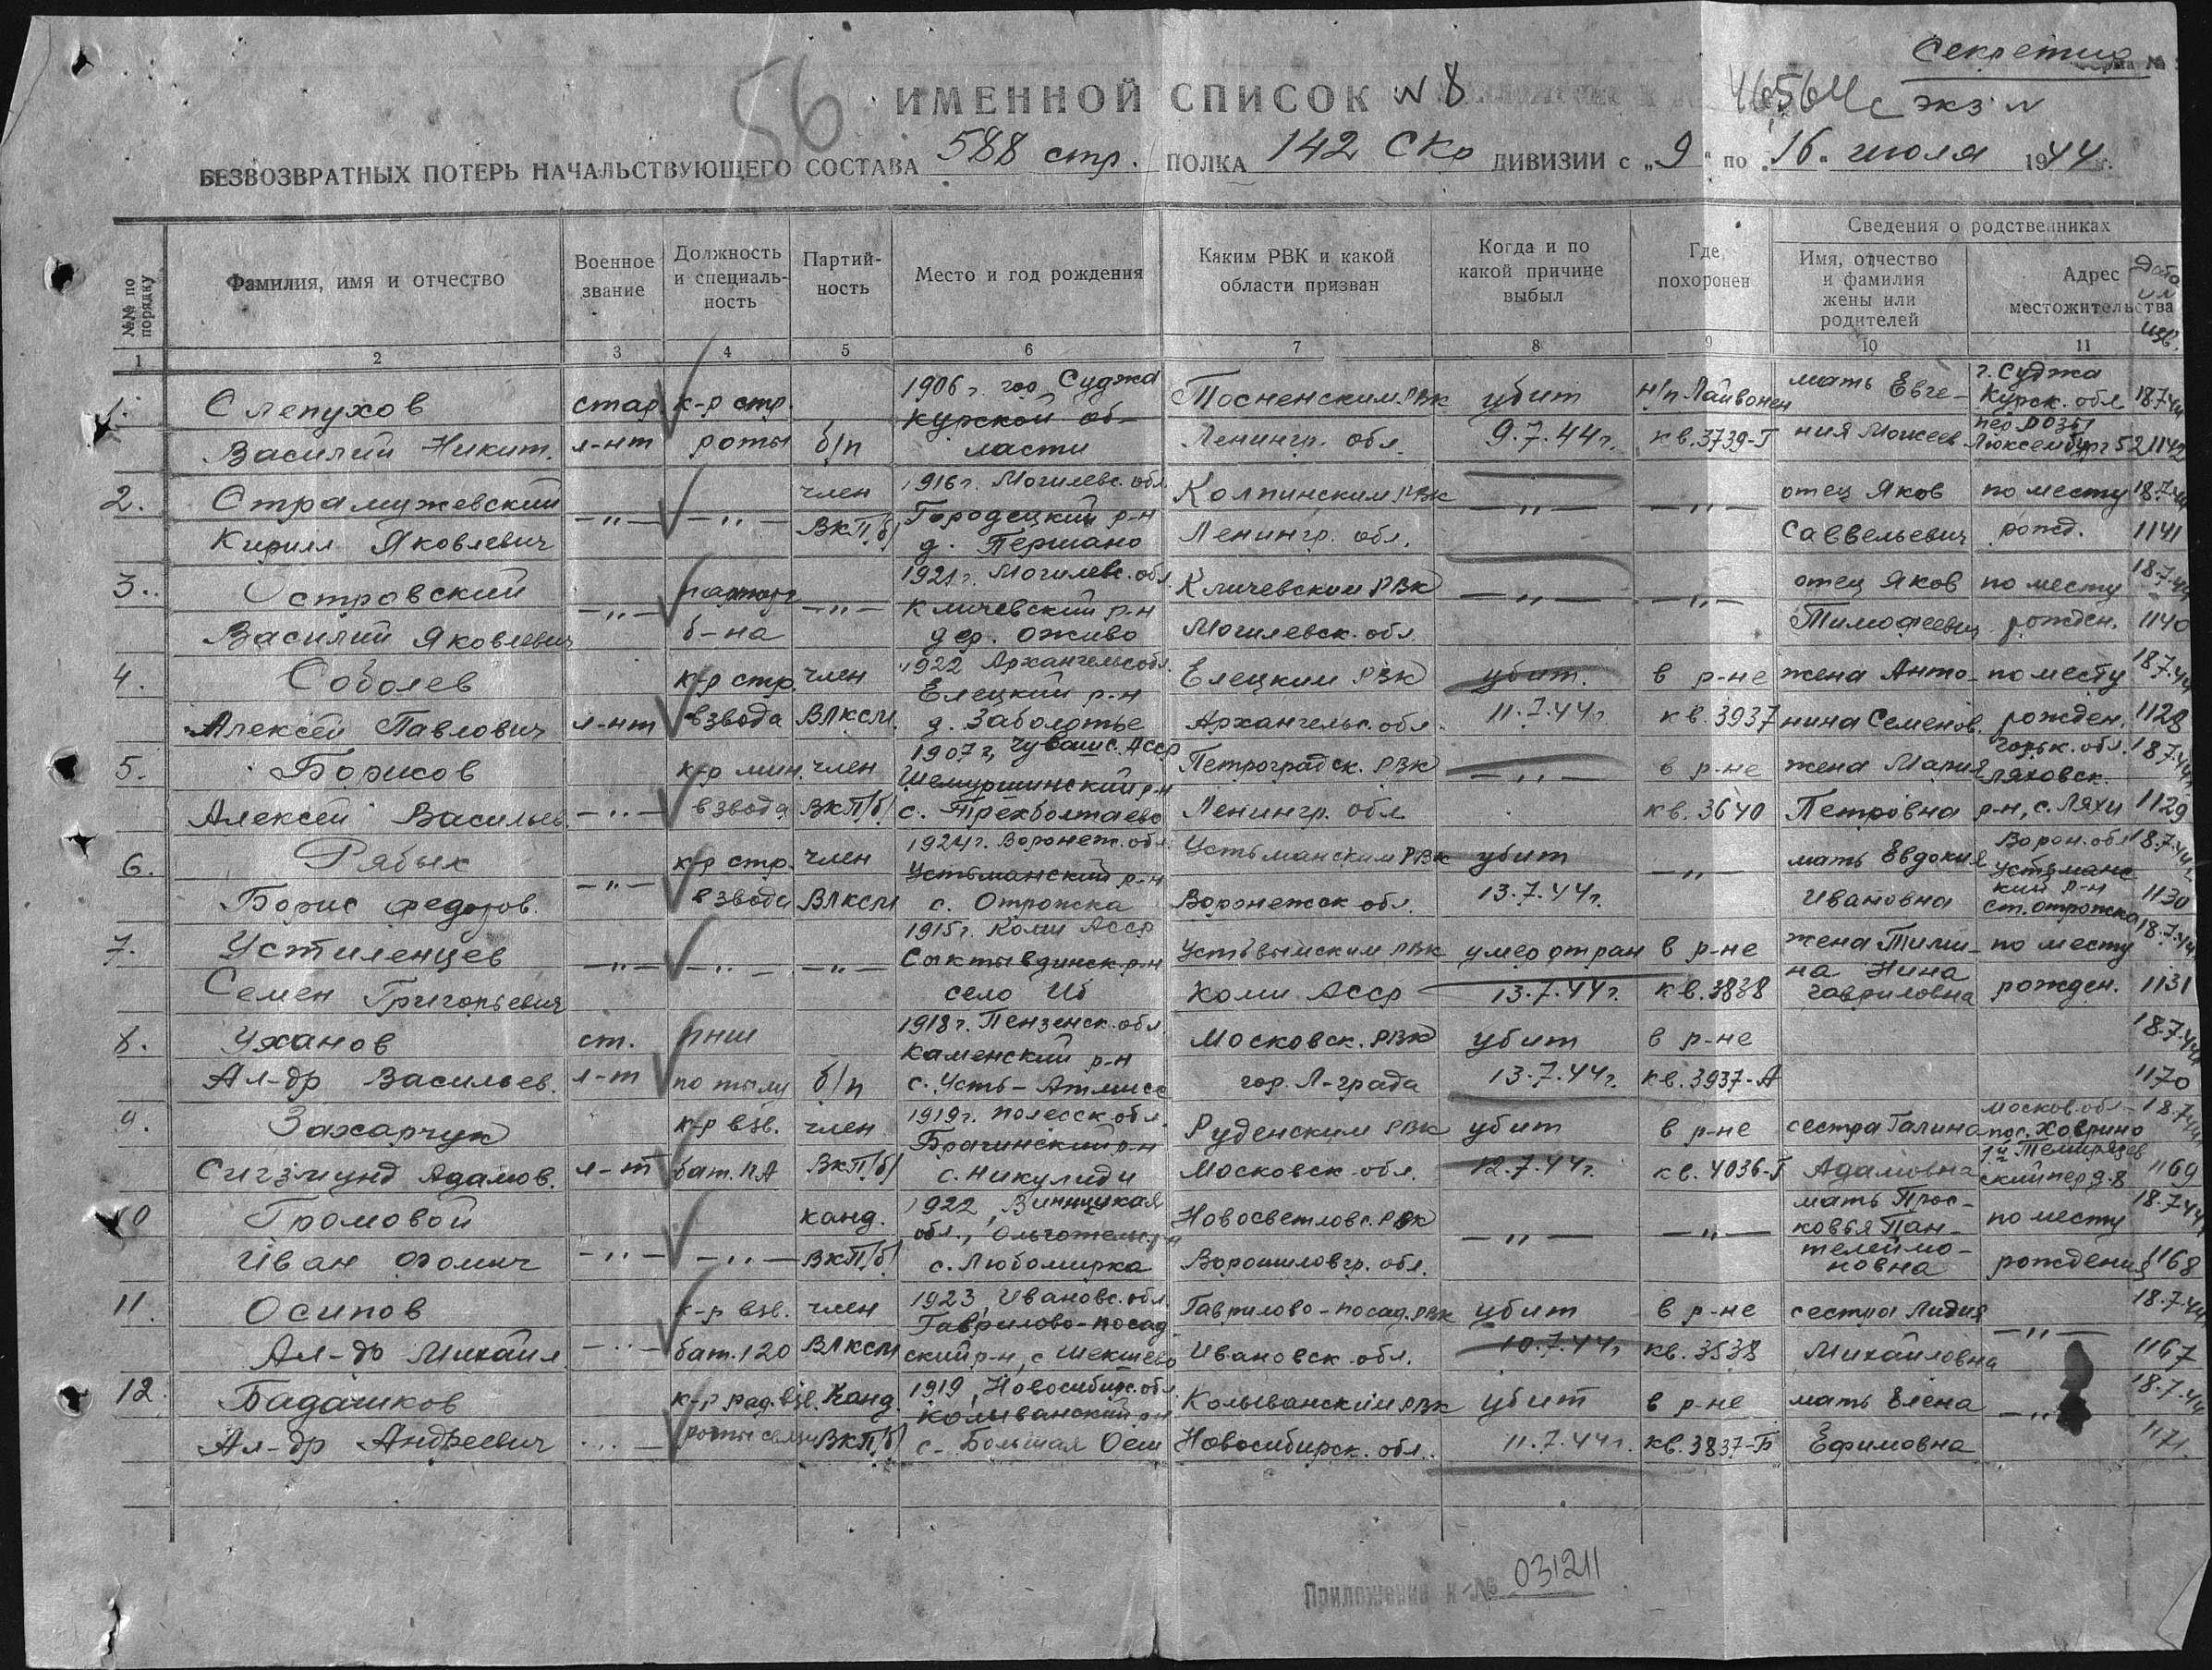 Секретно
56
ИМЕННОЙ СПИСОК № 8
46564с экз №
БЕЗВОЗВРАТНЫХ ПОТЕРЬ НАЧАЛЬСТВУЮЩЕГО СОСТАВА 588 стр. ПОЛКА 142 СКр ДИВИЗИИ с „9" по „16" июля 1944 г.
№№ по порядку
Фамилия, имя и отчество
Военное звание
Должность и специаль-ность
Партий-ность
Место и год рождения
Каким РВК и какой области призван
Когда и по какой причине выбыл
Где похоронен
Сведения о родственниках
Имя, отчество и фамилия жены или родителей
Адрес местожительства
Дата и № изв.
1 2 3 4 5 6 7 8 9 10 11
1. Слепухов стар. к-р стр. 1906 г. гор Суджа Тосненским РВК убит н/п Пайвонен мать Евге- г. Суджа Курск. обл 18.7.44
Василий Никит. л-нт роты б/п Курской об-ласти Ленингр. обл. 9.7.44 г. кв. 3739-Г ния Моисеев пер Розы Люксембург 52 1142
2. Страмужевский —"— —"— член 1916 г. Могилевс. обл. Колпинским РВК —"— —"— отец Яков по месту 18.7.44
Кирилл Яковлевич ВКП/б/ Городецкий р-н д. Першано Ленингр. обл. Саввельевич рожд. 1141
3. Островский —"— парторг —"— 1921 г. Могилевс. обл. Кличевским РВК —"— —"— отец Яков по месту 18.7.44
Василий Яковлевич б-на Кличевский р-н дер. Оживо Могилевск. обл. Тимофеевич рожден. 1140
4. Соболев к-р стр. член 1922 Архангельс обл. Елецким РВК убит. в р-не жена Анто- по месту 18.7.44
Алексей Павлович л-нт взвода ВЛКСМ Елецкий р-н д. Заболотье Архангельс. обл. 11.7.44 г. кв. 3937 нина Семенов. рожден. 1128
5. Борисов к-р мин. член 1907 г, Чувашс. АССР Петроградск. РВК —"— в р-не жена Мария Горьк. обл. Ляховск. 18.7.44
Алексей Васильев. —"— взвода ВКП/б/ Шемуршинский р-н с. Трехболтаево Ленингр. обл кв. 3640 Петровна р-н, с. Ляхи 1129
6. Рябых к-р стр. член 1924 г. Воронеж. обл. Устьманским РВК убит —"— мать Евдокия Ворон. обл 18.7.44
Борис Федоров. —"— взвода ВЛКСМ Устьманский р-н с. Отрожка Воронежск обл. 13.7.44 г. Ивановна Устьманс-кий р-н ст. Отрожка 1130
7. Устиленцев —"— —"— —"— 1915 г. Коми АССР Устьвымским РВК умер от ран в р-не жена Тими- по месту 18.7.44
Семен Григорьевич Сыктывдинск. р-н село Иб Коми АССР 13.7.44 г. кв. 3838 на Нина Гавриловна рожден. 1131
8. Уханов ст. ПНШ 1918 г. Пензенск. обл. Московск. РВК убит в р-не 18.7.44
Ал-др Васильев. л-т по тылу б/п Каменский р-н с. Усть-Атмисс гор. Л-града 13.7.44 г. кв. 3937-А 1170
9. Захарчук к-р взв. член 1919 г. Полесск. обл. Руденским РВК убит в р-не сестра Галина москов. обл- пос. Ховрино 18.7.44
Сигзмунд Адамов. л-т бат. ПА ВКП/б/ Брагинский р-н с. Никулиди Московск. обл. 12.7.44 г. кв. 4036-Г Адамовна 1й Тимирязев ский пер д. 8 1169
10 Громовой —"— —"— канд. 1922, Винницкая Новосветловс. РВК —"— —"— мать Прос-ковья Пан- по месту 18.7.44
Иван Фомич ВКП/б/ обл., с. Любомирка Ворошиловгр. обл. телеймо-новна рождения 1168
11. Осипов к-р взв. член 1923, Ивановс. обл. Гаврилово-посад. РВК убит в р-не сестра Лидия —"— 18.7.44
Ал-др Михаил —"— бат. 120 ВЛКСМ Гаврилово-посад ский р-н, с Шекшево Ивановск. обл. 10.7.44 г кв. 3538 Михайловна 1167
12. Бадашков к-р рад. взв. Канд. 1919, Новосибирс. обл. Колыванским РВК убит в р-не мать Елена —"— 18.7.44
Ал-др Андреевич —"— роты связи ВКП/б/ Колыванский р-н с. Большая Оеш Новосибирск. обл. 11.7.44 г. кв. 3837-Б Ефимовна 1171.
Приложение к № 031211